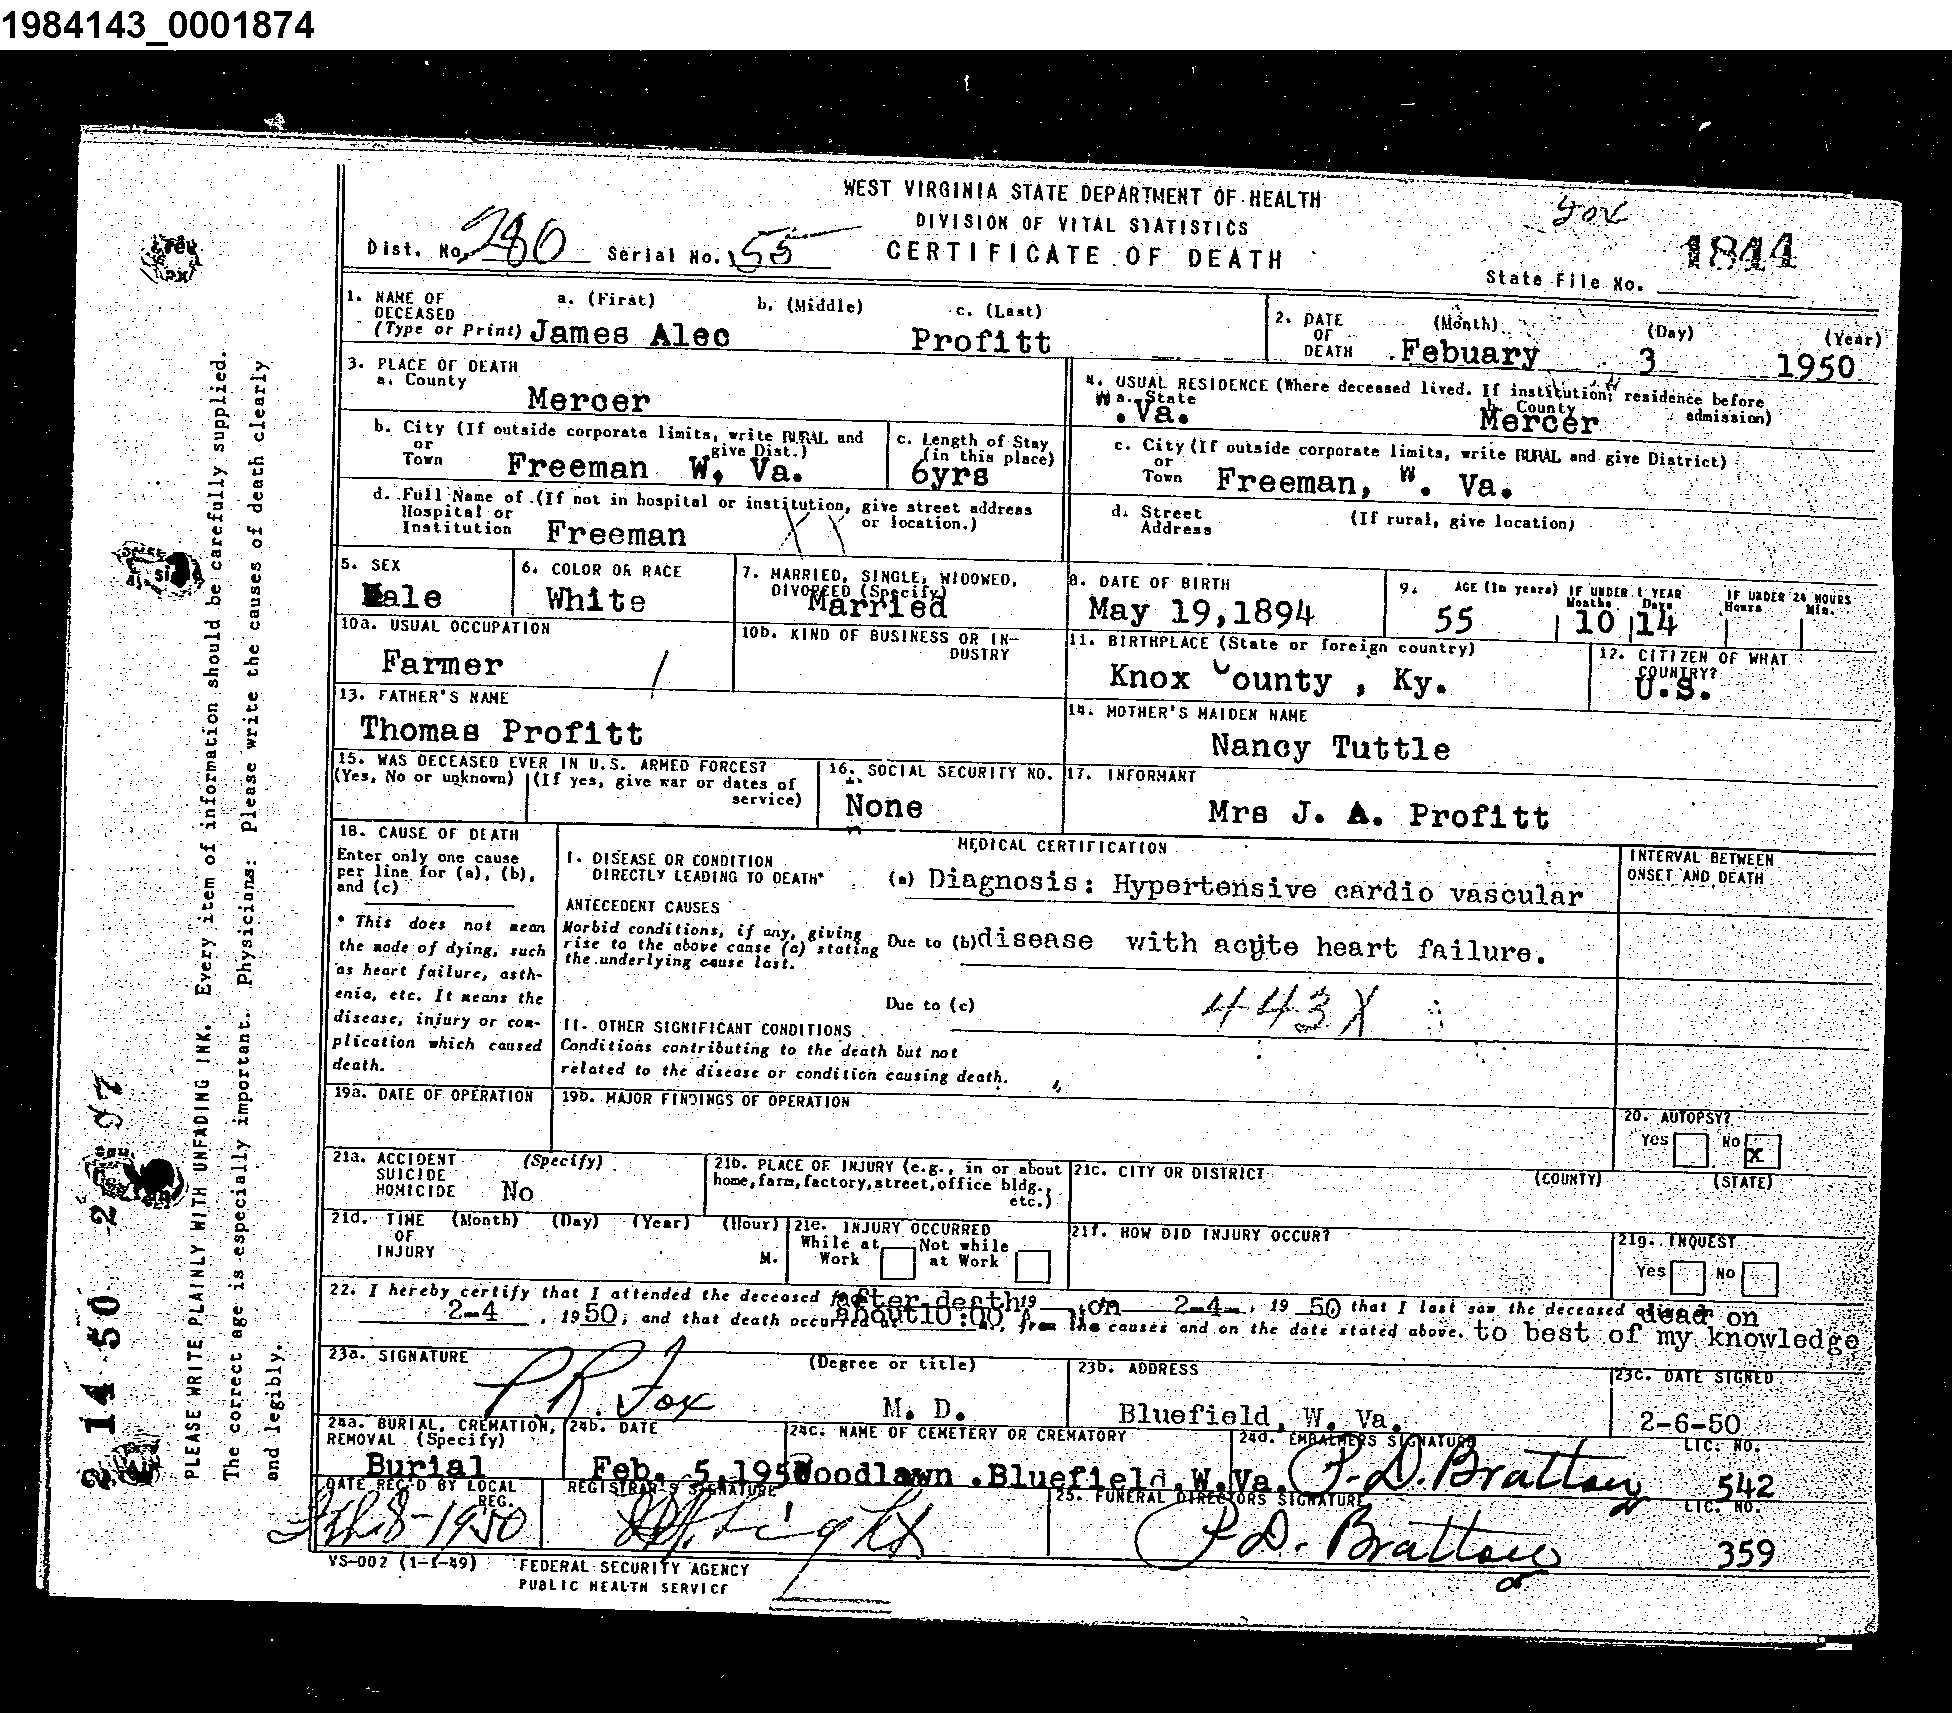 1984143_0001874
WEST VIRGINIA STATE DEPARTMENT OF HEALTH
DIVISION OF VITAL STATISTICS
CERTIFICATE OF DEATH
Dist. No. 280 Serial No. 55
State File No. 1844
1. NAME OF DECEASED (Type or Print) a. (First) b. (Middle) c. (Last)
James Alec Profitt
2. DATE OF DEATH (Month) (Day) (Year)
Febuary 3 1950
3. PLACE OF DEATH
a. County
Mercer
4. USUAL RESIDENCE (Where deceased lived. If institution; residence before admission)
a. State b. County
W.Va. Mercer
b. City (If outside corporate limits, write RURAL and give Dist.)
or Town
Freeman W, Va.
c. Length of Stay (in this place)
6yrs
c. City (If outside corporate limits, write RURAL and give District)
or Town
Freeman, W. Va.
d. Full Name of (If not in hospital or institution, give street address or location.)
Hospital or Institution
Freeman
d. Street Address (If rural, give location)
5. SEX
Male
6. COLOR OR RACE
White
7. MARRIED, SINGLE, WIDOWED, DIVORCED (Specify)
Married
8. DATE OF BIRTH
May 19,1894
9. AGE (In years) IF UNDER 1 YEAR Months Days IF UNDER 24 HOURS Hours Min.
55 10 14
10a. USUAL OCCUPATION
Farmer
10b. KIND OF BUSINESS OR INDUSTRY
11. BIRTHPLACE (State or foreign country)
Knox County , Ky.
12. CITIZEN OF WHAT COUNTRY?
U.S.
13. FATHER'S NAME
Thomas Profitt
14. MOTHER'S MAIDEN NAME
Nancy Tuttle
15. WAS DECEASED EVER IN U.S. ARMED FORCES?
(Yes, No or unknown) (If yes, give war or dates of service)
16. SOCIAL SECURITY NO.
None
17. INFORMANT
Mrs J. A. Profitt
18. CAUSE OF DEATH
Enter only one cause
per line for (a), (b),
and (c)
* This does not mean
the mode of dying, such
as heart failure, asth-
enia, etc. It means the
disease, injury or com-
plication which caused
death.
MEDICAL CERTIFICATION
I. DISEASE OR CONDITION
DIRECTLY LEADING TO DEATH*
(a) Diagnosis: Hypertensive cardio vascular
ANTECEDENT CAUSES
Morbid conditions, if any, giving
rise to the above cause (a) stating
the underlying cause last.
Due to (b) disease with acute heart failure.
Due to (c)
443X
II. OTHER SIGNIFICANT CONDITIONS
Conditions contributing to the death but not
related to the disease or condition causing death.
INTERVAL BETWEEN
ONSET AND DEATH
19a. DATE OF OPERATION
19b. MAJOR FINDINGS OF OPERATION
20. AUTOPSY?
Yes No x
21a. ACCIDENT SUICIDE HOMICIDE (Specify)
No
21b. PLACE OF INJURY (e.g., in or about
home, farm, factory, street, office bldg., etc.)
21c. CITY OR DISTRICT (COUNTY) (STATE)
21d. TIME OF INJURY (Month) (Day) (Year) (Hour) M.
21e. INJURY OCCURRED
While at Work Not while at Work
21f. HOW DID INJURY OCCUR?
21g. INQUEST
Yes No
22. I hereby certify that I attended the deceased after death 19 on 2-4-, 19 50 that I last saw the deceased dead on
2-4 , 1950; and that death occurred about 10:00 from the causes and on the date stated above. to best of my knowledge
23a. SIGNATURE (Degree or title)
P.R. Fox M. D.
23b. ADDRESS
Bluefield, W. Va.
23c. DATE SIGNED
2-6-50
24a. BURIAL, CREMATION, REMOVAL (Specify)
Burial
24b. DATE
Feb. 5,1950
24c. NAME OF CEMETERY OR CREMATORY
Woodlawn .Bluefield,W.Va.
24d. EMBALMERS SIGNATURE LIC. NO.
P. D. Bratton 542
DATE REC'D BY LOCAL REG.
Feb 8-1950
REGISTRAR'S SIGNATURE
25. FUNERAL DIRECTORS SIGNATURE LIC. NO.
P D. Bratton 359
VS-002 (1-1-49) FEDERAL SECURITY AGENCY
PUBLIC HEALTH SERVICE
PLEASE WRITE PLAINLY WITH UNFADING INK. Every item of information should be carefully supplied.
The correct age is especially important. Physicians: Please write the causes of death clearly
and legibly.
2 14 50